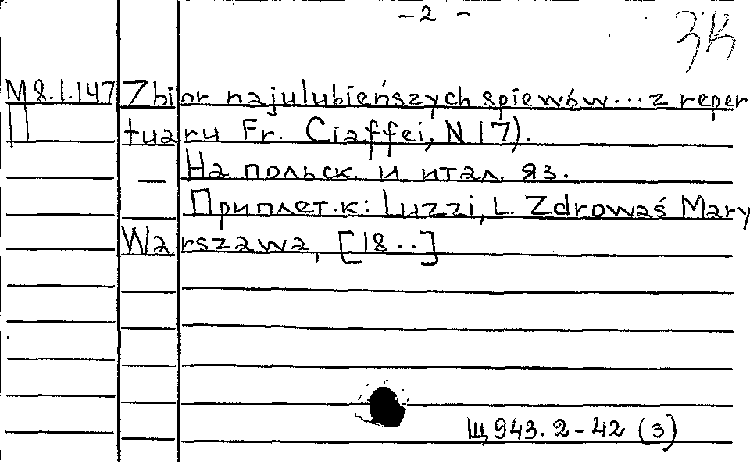 - 2 -
М 8.1.147 Zbior najulubieńszych spiewów... z reper
П tuaru Fr. Ciaffei, N 17).
— На польск. и итал. яз.
Приплет. к: Luzzi, L. Zdrowaś Mary
Warszawa, [18..]
Щ 943.2-42 (3)